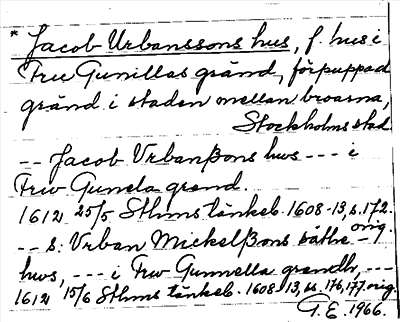 * Jacob Urbanssons hus, f. hus i
Fru Gunillas gränd, förpuppad
gränd i staden mellan broarna,
Stockholms stad
-- Jacob Vrbanßons hws --- i
Frw Gunela grend.
1612 25/5 Sthms tänkeb. 1608-13, s. 172.
-- s. Vrban Mickelßons säthe- orig.
hws, --- i Frw Gunnella grendh, --
1612 15/6 Sthms tänkeb. 1608-13, ss. 176, 177. orig.
G.E. 1966.